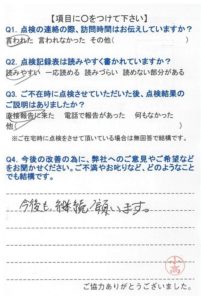 【項目に○をつけて下さい】
Q1. 点検の連絡の際、訪問時間はお伝えしていますか?
言われた 言われなかった その他( )
Q2. 点検記録表は読みやすく書かれていますか?
読みやすい 一応読める 読みづらい 読めない部分がある
Q3. ご不在時に点検させていただいた後、点検結果の
ご説明はありましたか?
直接報告に来た 電話で報告があった 何もなかった
他( )
※ご在宅時に点検をさせて頂いている場合は無回答で結構です。
Q4. 今後の改善の為に、弊社へのご意見やご希望など
をお聞かせください。ご不満やお叱りなど、どのようなこと
でも結構です。
今後も継続願います。
ご協力ありがとうございました。